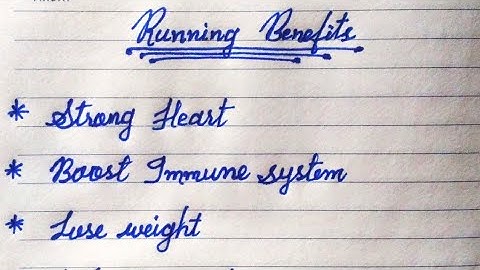 Running Benefits
* Strong Heart
* Boost Immune system
* Lose weight